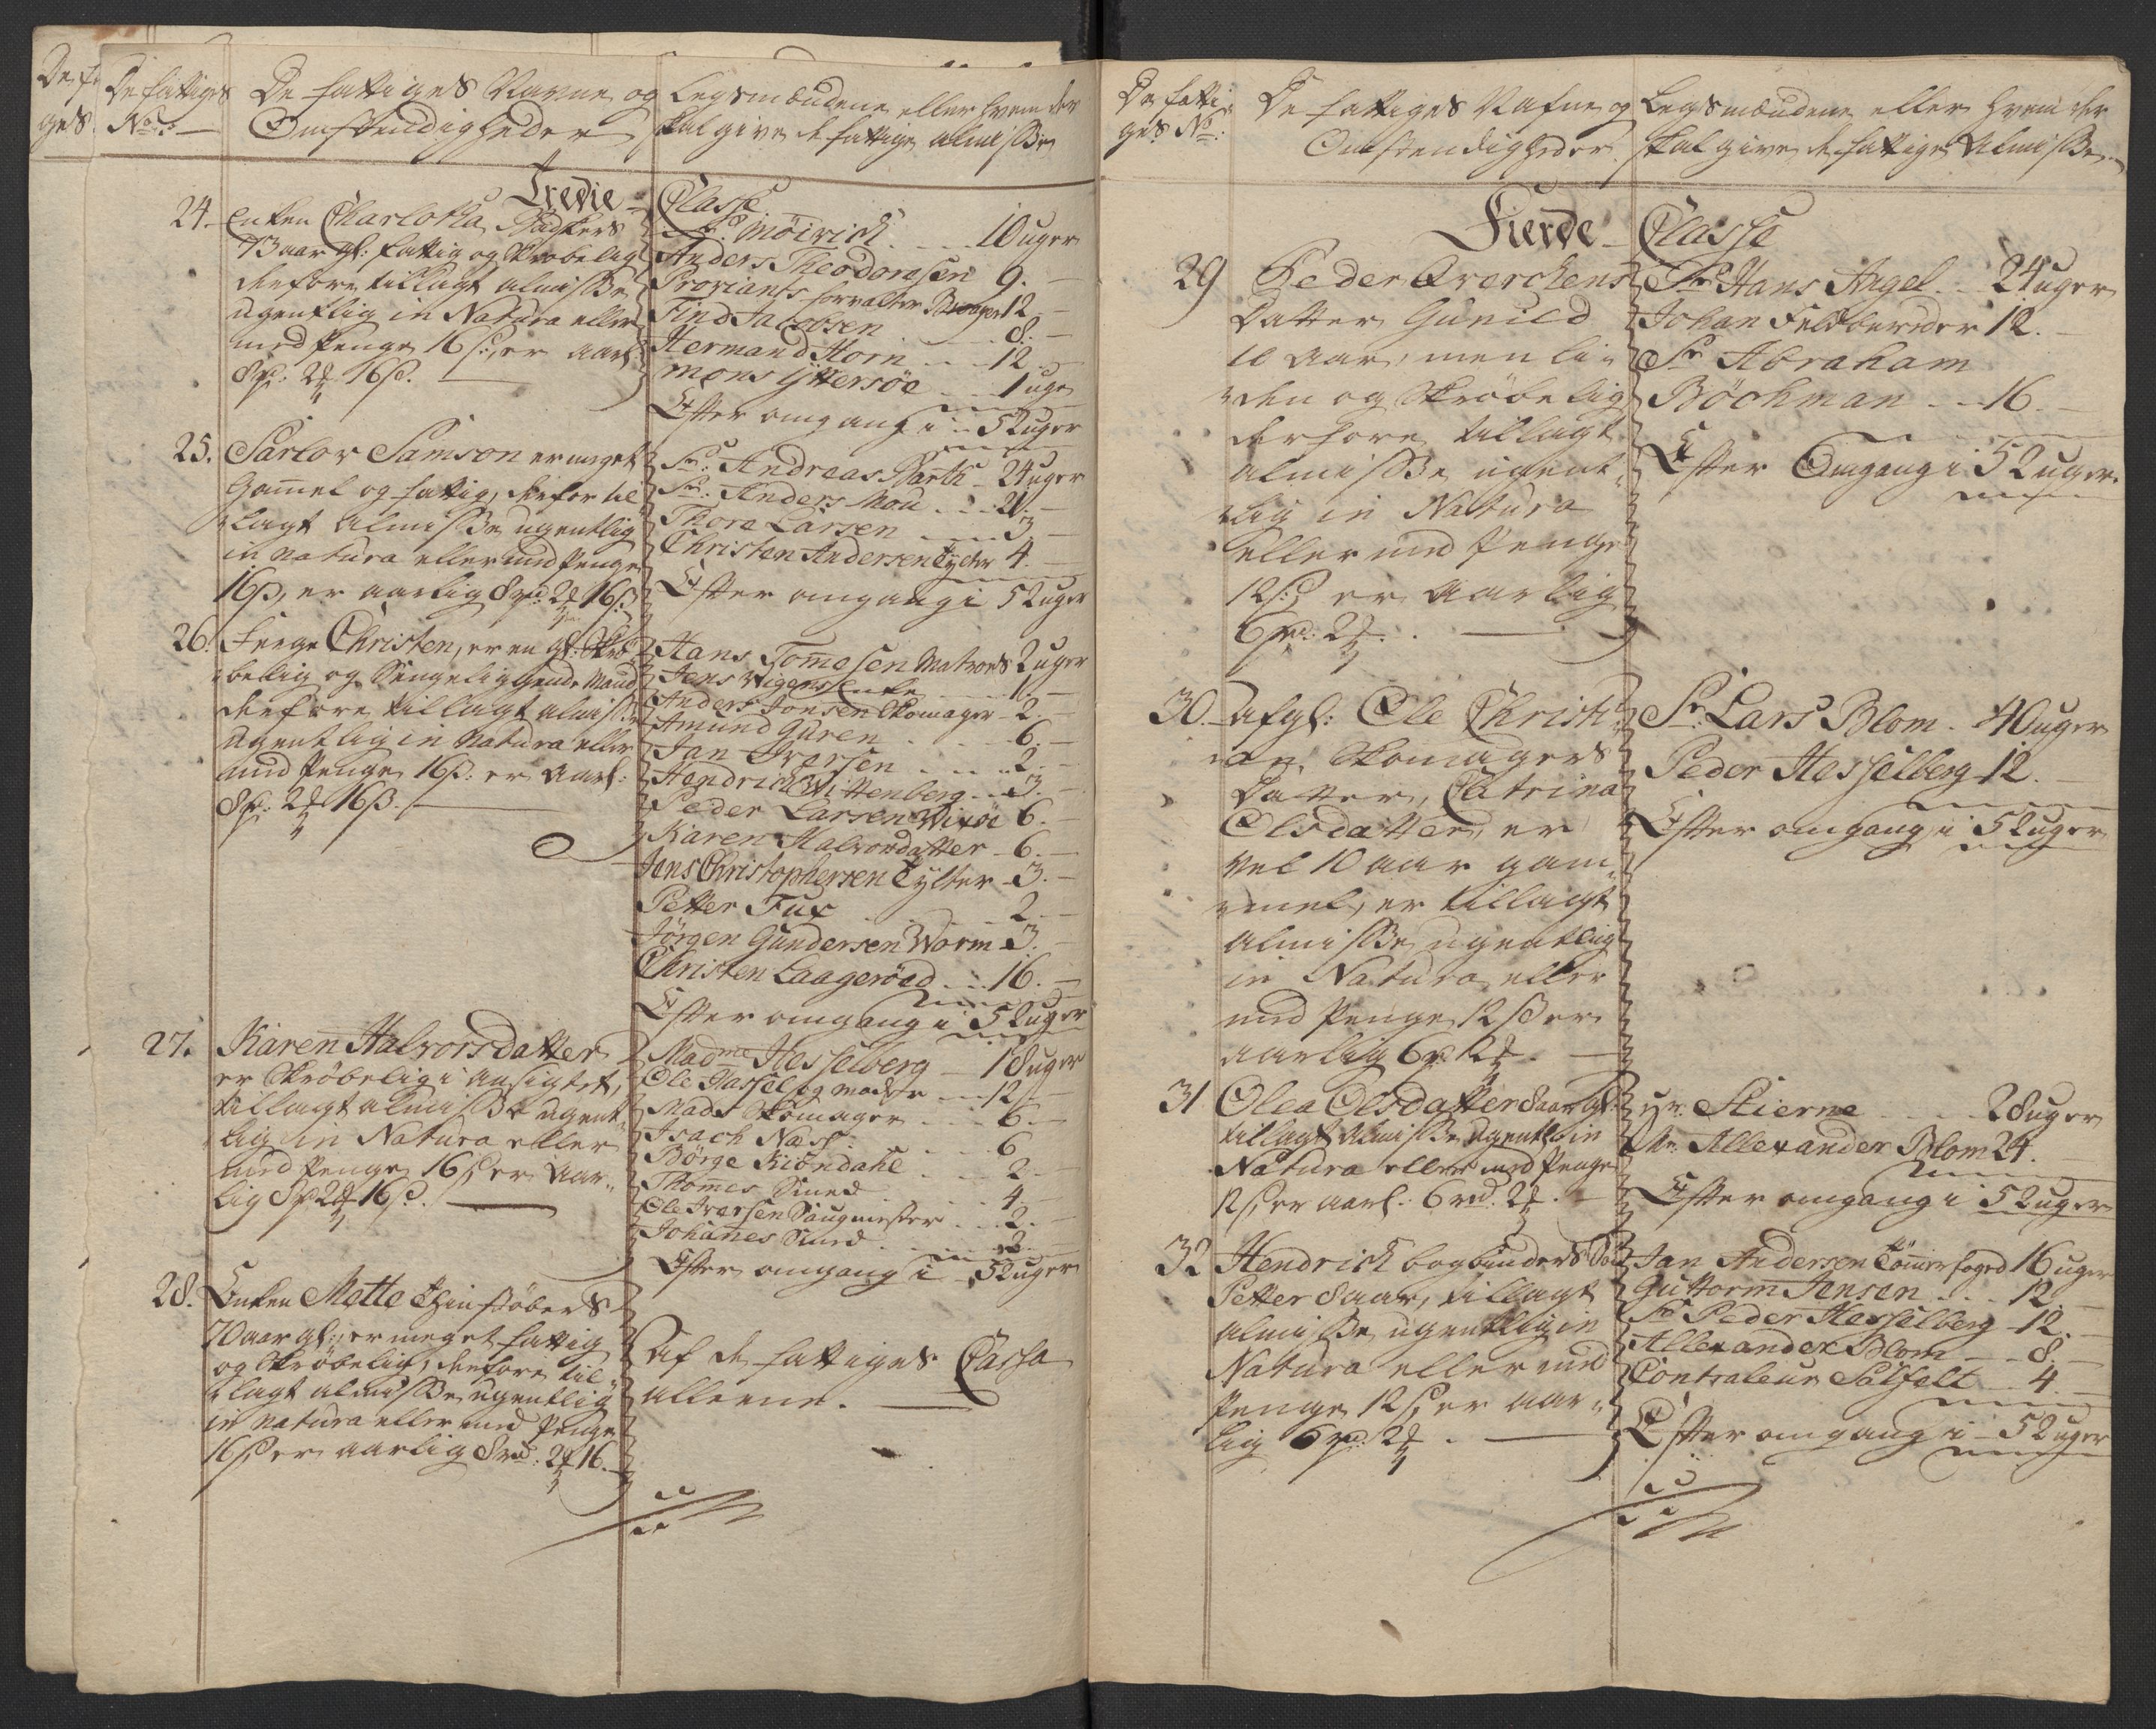 De fattiges
No:
De fattiges Navne og
Omstendigheder
Legsmændene eller hvem der
skal give de fattige almisse
Tredie Classe
24. Enken Charlotha Bødkers
73 aar gl: fattig og skrøbelig
derfore tillagt almisse
ugentlig in Natura eller
med Penge 16 s: er aarl:
8 rd: 2 16 s.
Sr. Möirich 10 uger
Anders Theodorsen 9.
Proviants forvalter 12
Find Jacobsen 8.
Hermand Horn 12
Mons Yttersöe 1 uge
Efter omgang i 52 uger
25. Samson er meget
Gammel og fattig, derfor til
lagt almisse ugentlig
in natura eller med Penge
16 s, er aarlig 8 rd: 2 16 s
Sr: Andreas Barth 24 uger
Sr: Anders Mou 21.
Thore Larsen 3
Christen Andersen 4.
Efter omgang i 52 uger
26. Christen, er en gl: Skrø
belig og Sengeliggende Mand
derfore tillagt almisse
ugentlig in Natura eller
med Penge 16 s: er aarl:
8 rd: 2 16 s.
Hans Tomesen Matros 2 uger
Jens Enke 1.
Anders Jonsen Skomager 2.
Amund Guren 6.
Jan Iversen 2.
Hendrich Wittenberg 3.
Peder Larsen Wixöe 6.
Karen Halvorsdatter 6.
Jens Christophersen 3.
Petter Fux 2.
Jörgen Gundersen Worm 3.
Christen Laageröed 16.
Efter omgang i 52 uger
27. Karen Halvorsdatter
er skrøbelig i ansigtet,
tillagt almisse ugent
lig in Natura eller
med Penge 16 s er aar
lig 8 rd 2 16 s.
Madme Hesselberg 18 uger
Ole Tassel og 12
Mads Skomager 6.
Isach Næss 6
Börge Kiöndahl 2
Thomes Smed 4.
Ole Iversen Saugmester 2.
Johanes Smed 2.
Efter omgang i 52 uger
28. Enken Mette Thinstöbers
70 aar gl: er meget fattig
og skrøbelig, derfore til
lagt almisse ugentlig
in natura eller med Penge
16 s er aarlig 8 rd: 2 16.
af de fattiges Cassa
alleene.
De fatti
ges No:
De fattiges Nafne og
Omstendigheder
Legsmændene eller hvem der
skal give de fattige Almisse
Fierde Classe
29 Peder Qverckens
Datter Gunild
10 aar, men li
den og skrøbelig
derfore tillagt
almisse ugent
lig in Natura
eller med Penge
12 s: er aarlig
6 rd: 2
Sr Hans Angel 24 uger
Johan Feldbereder 12.
Sr Abraham
Böchman 16.
Efter Omgang i 52 uger
30. afgl: Ole Christi
an Skomagers
Datter, Catrina
Olsdatter, er
vel 10 aar gam
mel, er tillagt
almisse ugentlig
in Natura eller
med Penge 12 s er
aarlig 6 rd 2
Sr. Lars Blom 40 uger
Peder Hesselberg 12.
Efter omgang i 52 uger
31 Olea Olsdatter 8 aar gl:
tillagt almisse ugentl: in
Natura eller med Penge
12 s, er aarl: 6 rd: 2
Hr. Stierne 28 uger
Sr: Allexander Blom 24.
Efter omgang i 52 uger
32 Hendrich bogbinders Søn
Petter 8 aar, tillagt
almisse ugentlig in
Natura eller med
Penge 12 s, er aar
lig 6 rd: 2
Jan Andersen Tömerfoged 16 uger
Guttorm Jensen 12
Sr Peder Hesselberg 12.
Allexander Blom 8
Contraleur Salfelt 4
Efter omgang i 52 uger